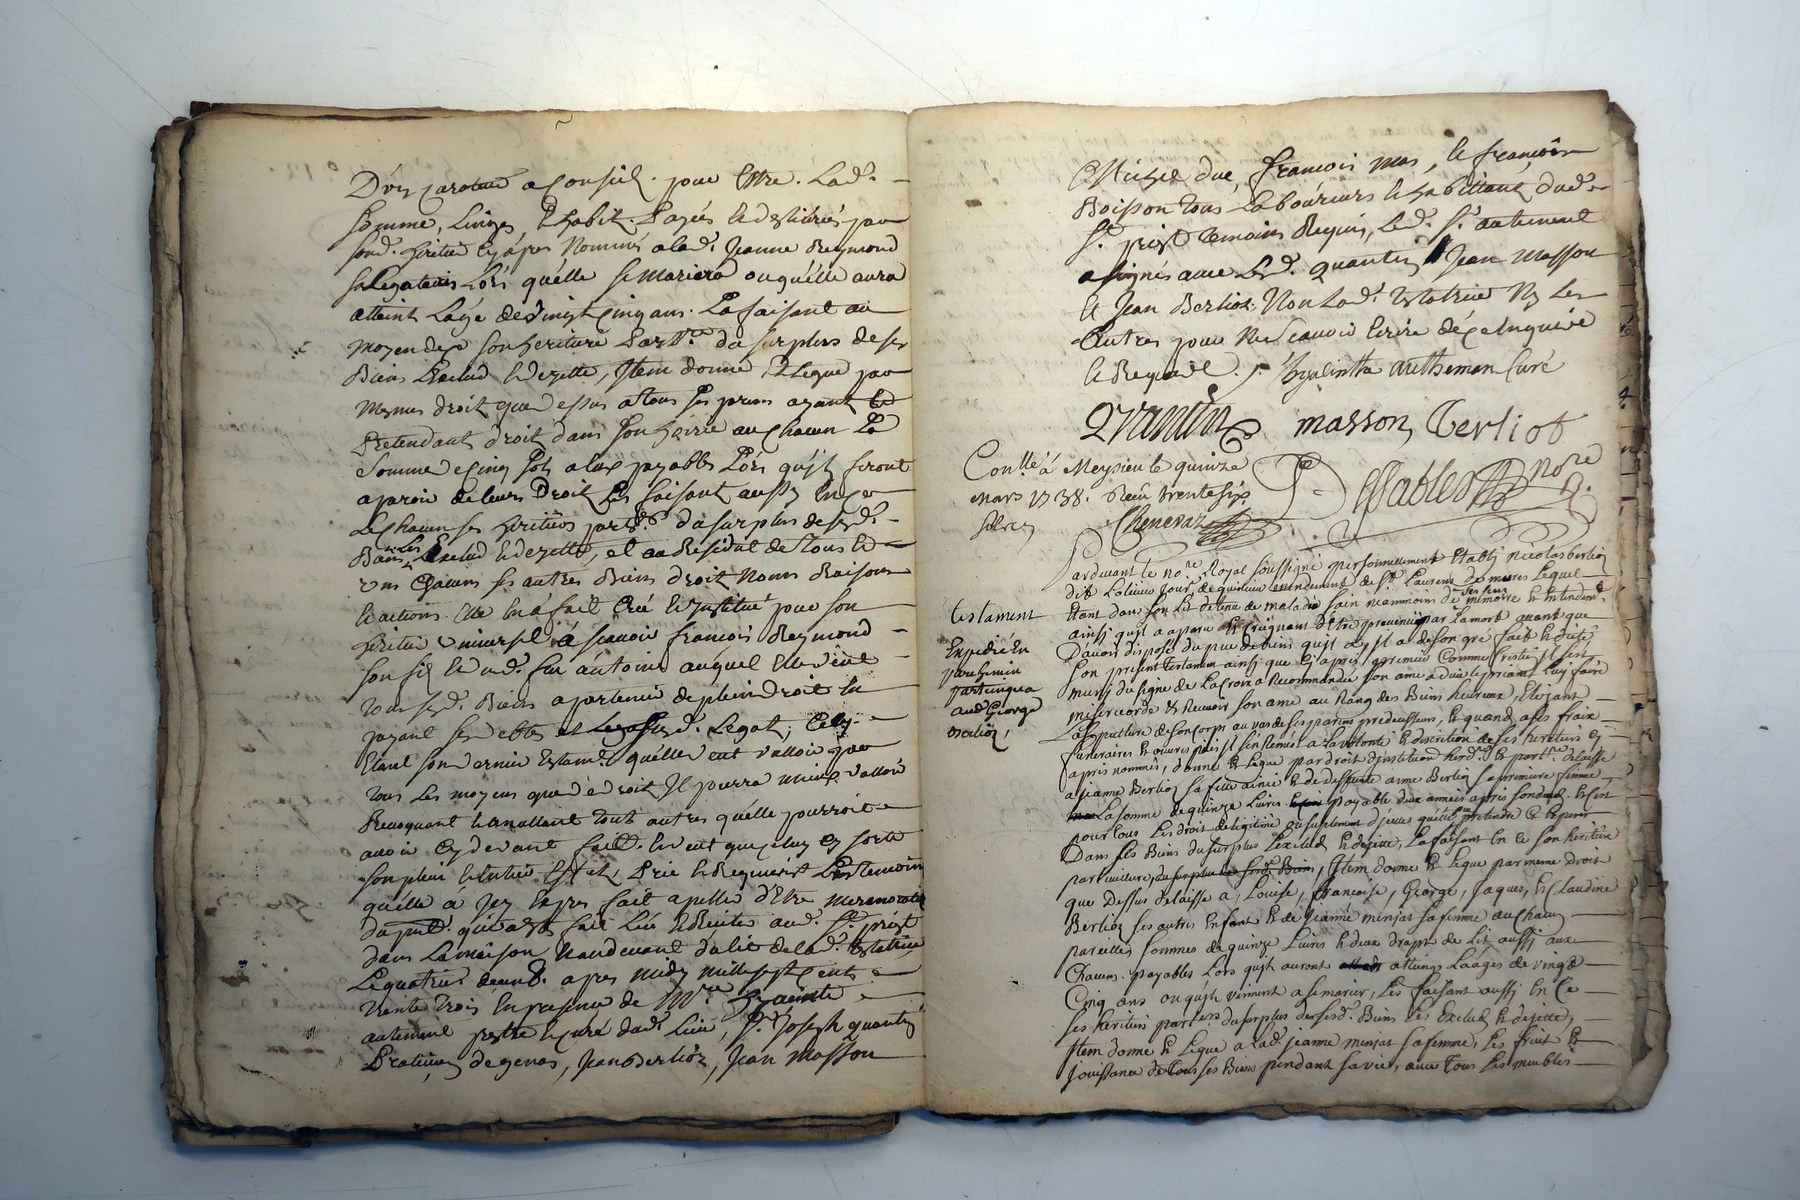 somme, Linges, & habit. Payés & deslivrés par
sond. heritier cy apres Nommé a lad. Jeanne Reymond
sa Legataire Lors quelle se mariera ou quelle aura
atteint Laye de vingt cinq ans. La faisant au
moyen de ce son heritiere part.re du surplus de ses
Biens Exclud & dejette, Item donne & Legue par
mesme droit que dessus a tous ses parens ayant
Pretendant droit dans son hoirie au Chacun La
Somme cinq sols a eux payables Lors quils feront
aparoir de leurs Droit Les faisant aussy en ce
Biens Les Exclud & dejette, et au Residut de Tous &
uns Chacuns ses autres Biens droit Noms Raisons
& actions. Elle en a fait Créé & Institué pour son
heritier universel á scavoir françois Reymond
son fils & aud. feu antoine auquel Elle veut
tous sesd. Biens apartenir de plein droit En
payant ses debtes et Legat, Cecy
Etant son dernier testam.t quelle veut valloir par
tous Les moyens que de droit Il pourra mieux valloir
Revoquant & anullant tout autres quelle pourroit
avoir cy devant fait. & veut que celuy cy sorte
son plein & entier Effet, Prie & Requiert Les temoins
quelle á Icy Expres fait apeller d'Etre memoratifs
du pnt. que a été fait Leu & Recité aud. St. priest
dans La maison & audevant du lit de la d. testatrice
Le quatrie apres midy mille sept cents
trente trois En presence de M.re Hyacinte
autement prestre & curé dud. Lieu, S.r Joseph quantin
Praticien de genas, Jean Berlioz, Jean Masson
Michel duc, françois mas, & françois
Boisson tous Laboureurs & habittant dud.
St. priest temoins Requis, Led. S.r autement
a signés avec Led. quantin Jean Masson
& Jean Berlioz. Non Lad. testatrice Ny Les
Autres pour Ne scavoir Ecrire de ce Enquise
& Requise. Hyacinthe authemen Curé
Quantin masson Berliot
Con.lé á Meysieu le quinze
mars 1738. Reçu trente six
sols
Chenevaz
Desables no.re
Testament
Expedié En
parchemin
aud George
Berlioz
Pardevant le no.re Royal soussigné personnellement Etably nicolas berlioz
dit Lolivier Jour. de mandement de St. Laurens de mures Lequel
Etant dans son Lit detenu de maladie sain neammoins de ses sens memoire & Entendem.t
ainsi quil a aparu & Craignant d'Etre prevenu par la mort avant que
D'avoir disposé du peu de biens quil a, Il a de son gré fait & dicté
son present testament ainsi que cy apres, premier Comme Crestien Il s'est
muny du signe de La Croix a Recommandée son ame a dieu le priant luy faire
misericorde & Recevoir son ame au Rang des Biens heureux, Elizant
La sepulture de son Corps au vas de ses parens predecesseurs, & quand a ses fraix
funeraires & œuvres pies Il s'en Remet a La volonté & discretion de ses heritiers cy
apres nommés, donne & Legue par droit d'institution hered.re & part.re delaisse
a jeanne Berlioz sa fille ainée & de deffunte anne Berlioz sa premiere femme
La somme de quinze Livres payable deux années apres son deces. & c'est
pour tous Les droit de legitime ou suplement d'jcelle quelle pourroit pretendre & Esperer
Dans ses Biens du surplus L'exclud & dejette, La faisant En ce son heritiere
particuliere, Item donne & Legue par meme droit
que dessus delaisse a Louise, françoise, George, Jaques, & Claudine
Berlioz ses autres Enfant & de jeanne minjat sa femme au Chacun
pareilles sommes de quinze Livres & deux draps de Lit aussy aux
Chacuns. payables Lors quils auront attaint Laages de vingt
Cinq ans ou quils viennent a se marier, Les faisant aussy En ce
ses heritiers part.res du surplus de sesd. Biens Les Exclud & dejette,
Item donne & Legue a Lad. jeanne minjat sa femme, Les fruit &
jouissance de tous ses Biens pendant sa vie, avec tous Les meubles